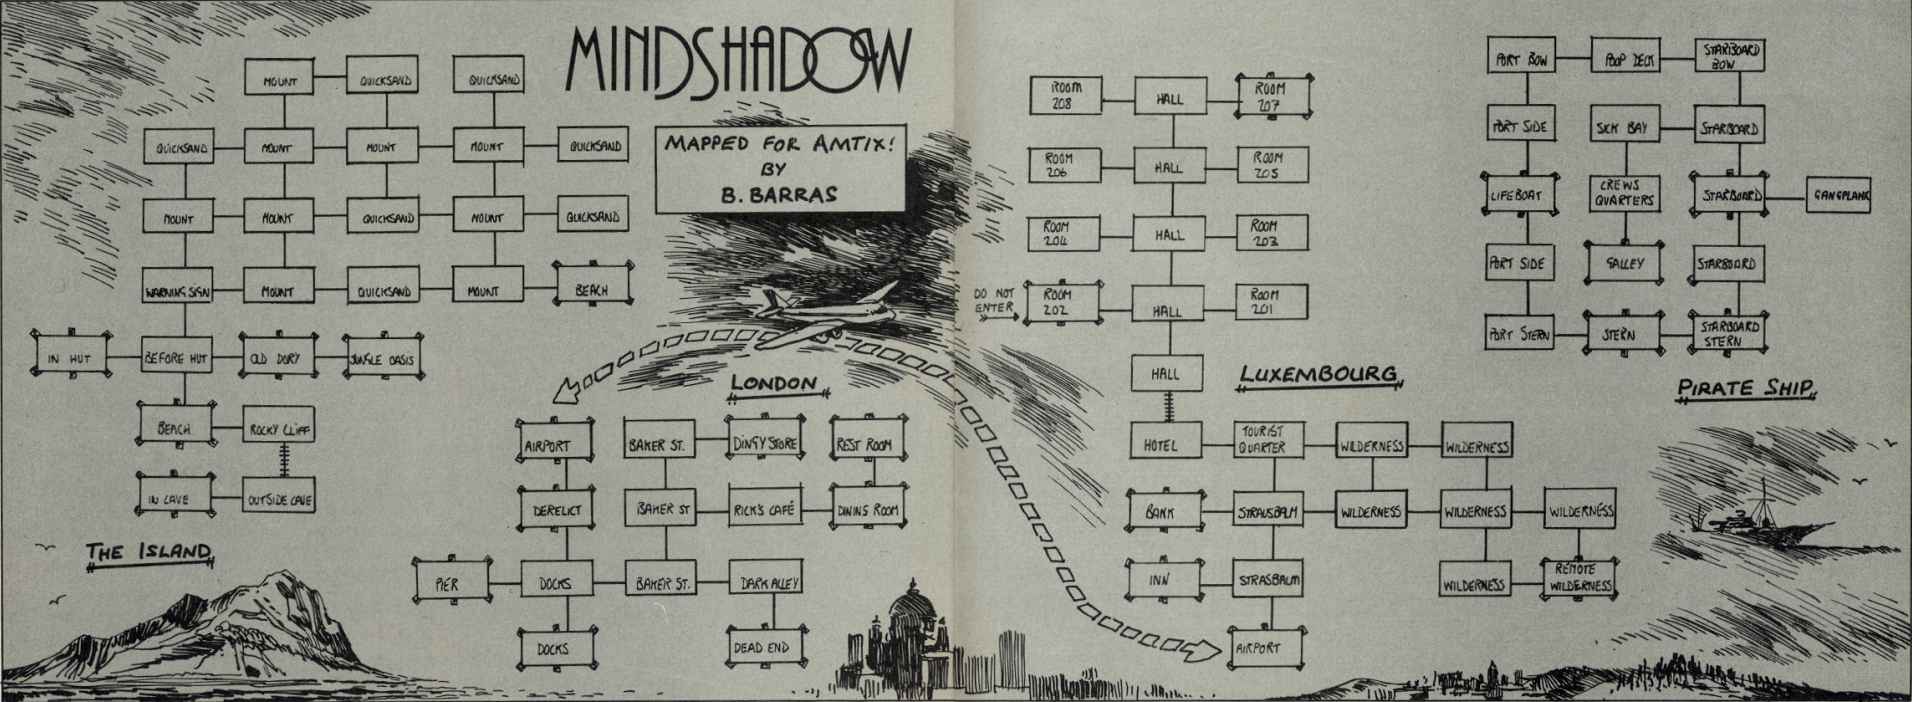 MINDSHADOW
MAPPED FOR AMTIX!
BY
B. BARRAS
MOUNT
QUICKSAND
QUICKSAND
QUICKSAND
MOUNT
MOUNT
MOUNT
QUICKSAND
MOUNT
MOUNT
QUICKSAND
MOUNT
QUICKSAND
WARNING SIGN
MOUNT
QUICKSAND
MOUNT
BEACH
IN HUT
BEFORE HUT
OLD DORY
JUNGLE OASIS
BEACH
ROCKY CLIFF
IN CAVE
OUTSIDE CAVE
THE ISLAND
LONDON
AIRPORT
BAKER ST.
DINGY STORE
REST ROOM
DERELICT
BAKER ST
RICK'S CAFÉ
DINING ROOM
PIER
DOCKS
BAKER ST.
DARK ALLEY
DOCKS
DEAD END
ROOM
208
HALL
ROOM
207
ROOM
206
HALL
ROOM
205
ROOM
204
HALL
ROOM
203
DO NOT
ENTER
ROOM
202
HALL
ROOM
201
HALL
LUXEMBOURG
HOTEL
TOURIST
QUARTER
WILDERNESS
WILDERNESS
BANK
STRAUSBALM
WILDERNESS
WILDERNESS
WILDERNESS
INN
STRASBALM
WILDERNESS
REMOTE
WILDERNESS
AIRPORT
PORT BOW
POOP DECK
STARBOARD
BOW
PORT SIDE
SICK BAY
STARBOARD
LIFEBOAT
CREWS
QUARTERS
STARBOARD
GANGPLANK
PORT SIDE
GALLEY
STARBOARD
PORT STERN
STERN
STARBOARD
STERN
PIRATE SHIP